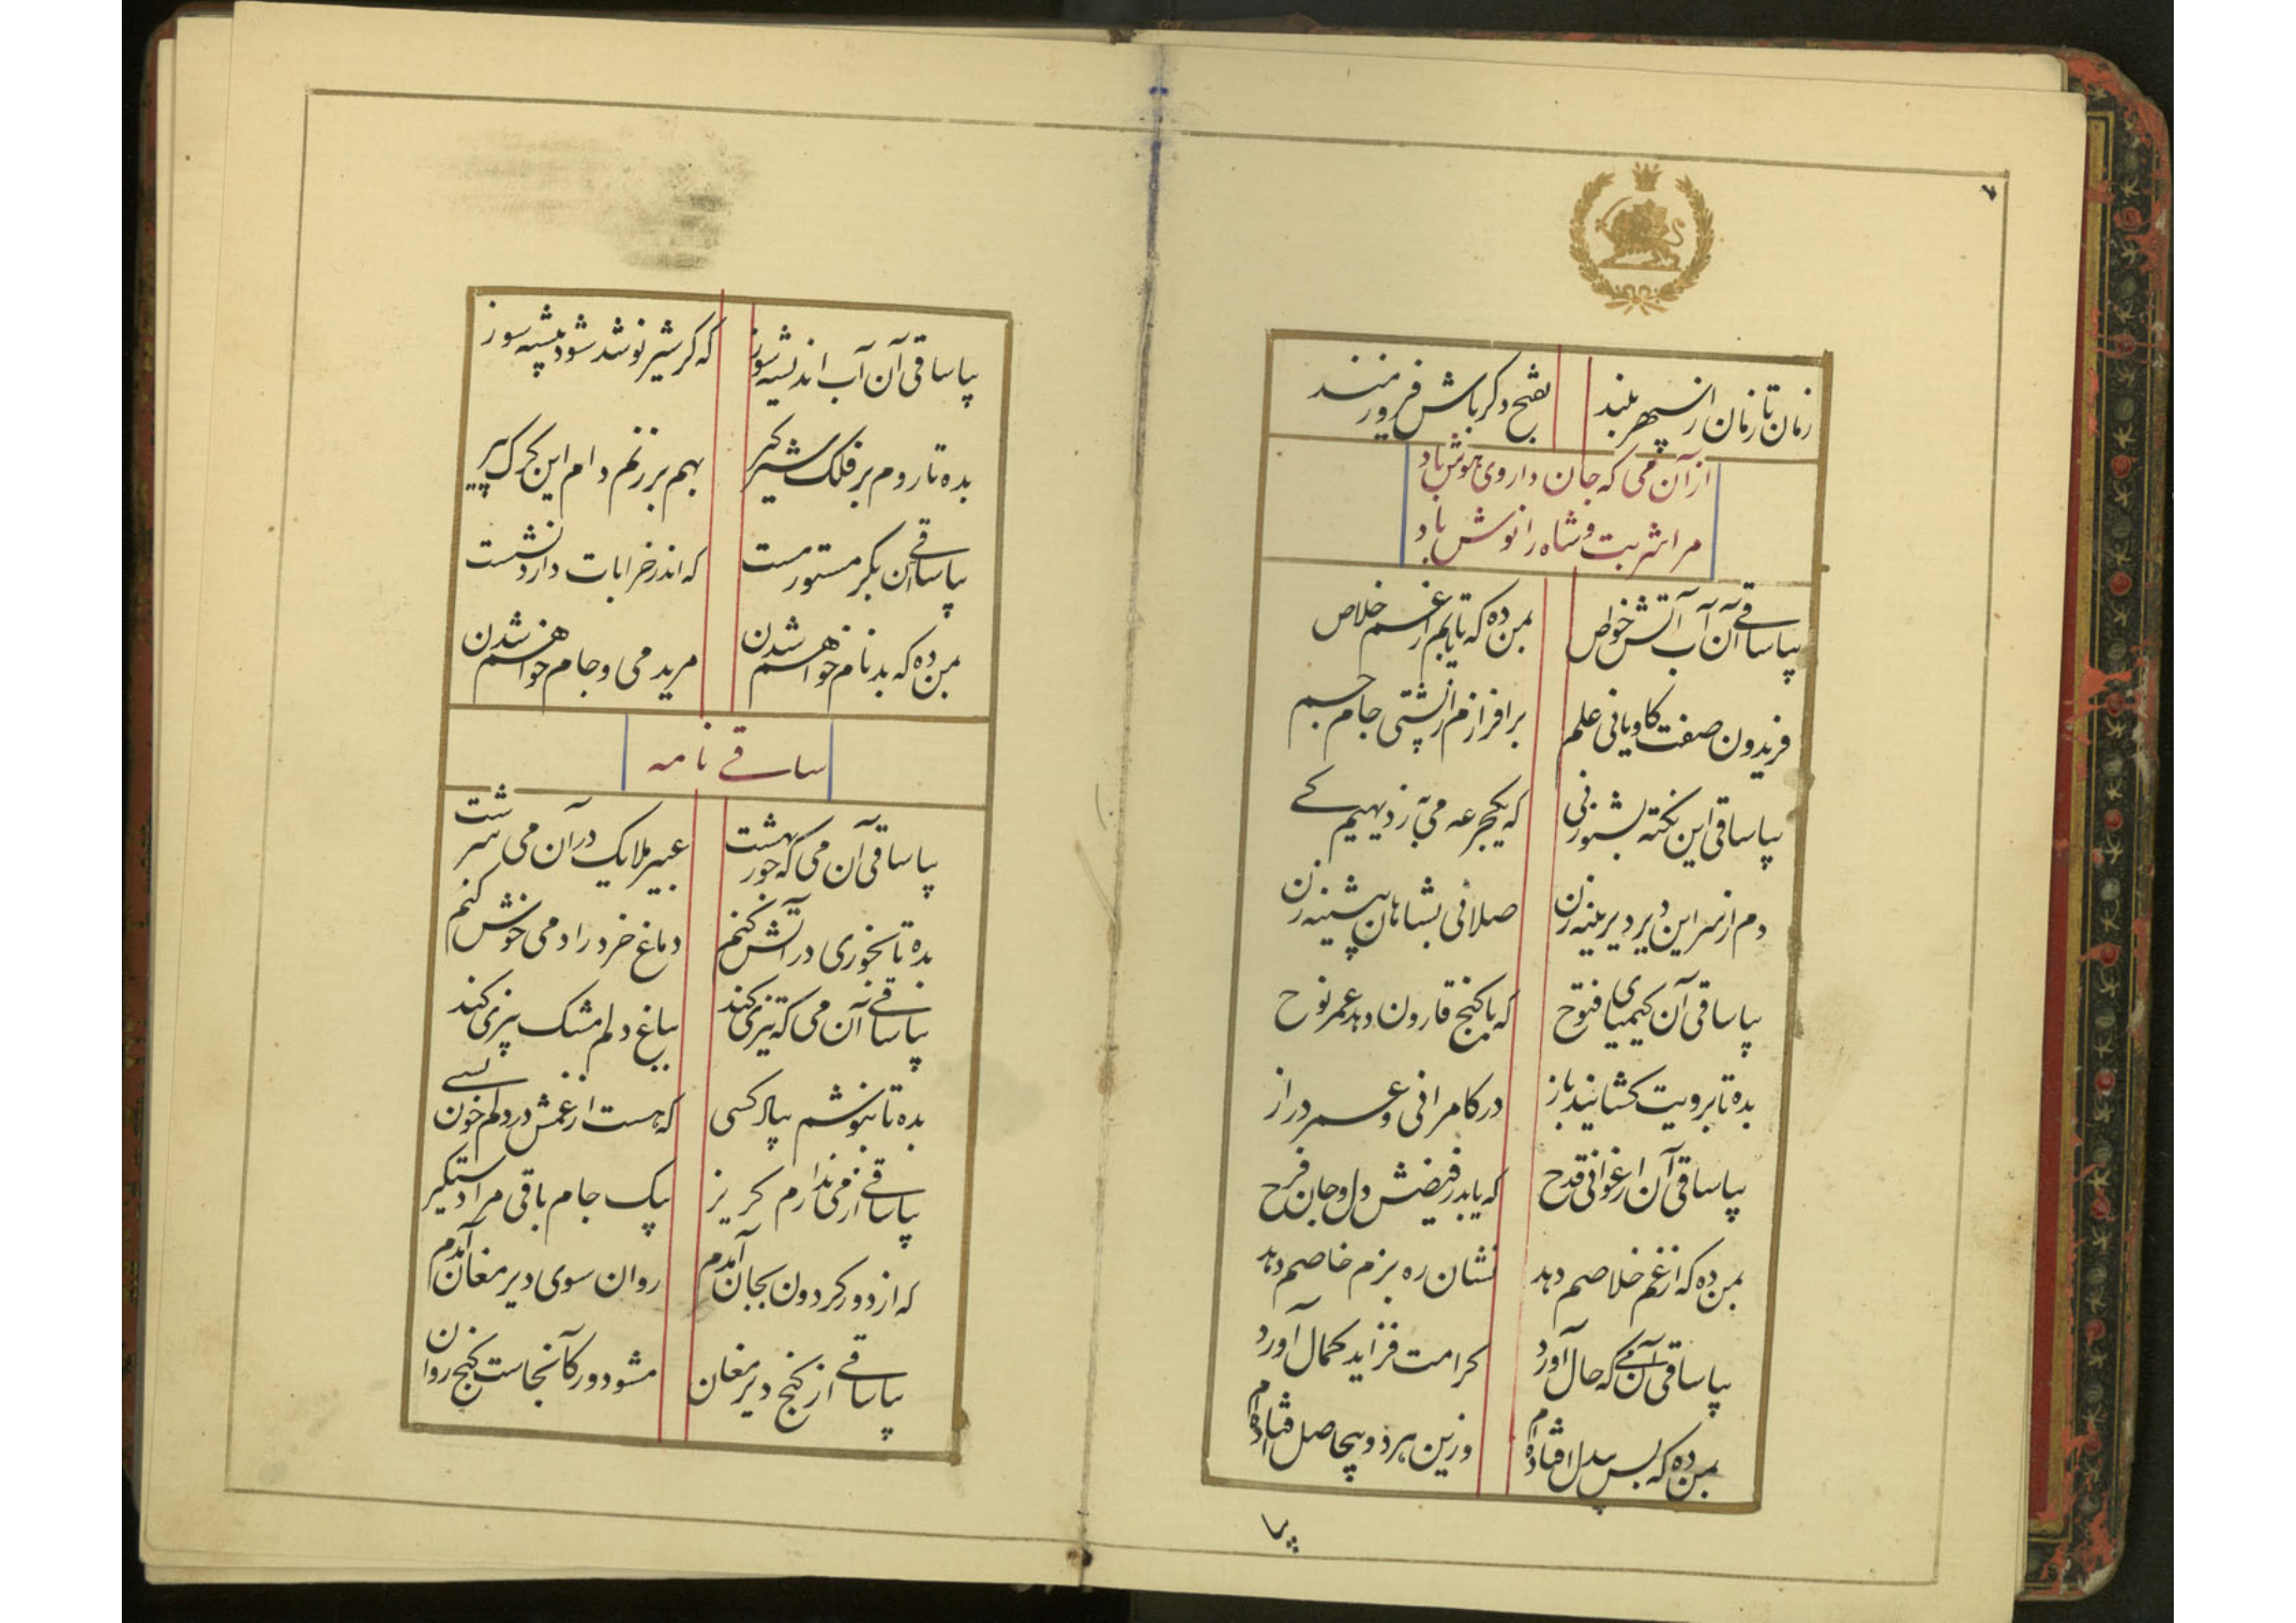 ۷
زمان تا زمان از سپهر بلند بفتح دگر باش فیروزمند
از آن می که جان داروی هوش باد
مرا شربت و شاه را نوش باد
بیا ساقی آن آب آتش خواص بمن ده که تا یابم از غم خلاص
فریدون صفت کاویانی علم برافرازم از پشتی جام جم
بیا ساقی این نکته بشنو ز نی که یکجرعه می به ز دیهیم کی
دم از سر این دیر دیرینه زن صلائی بشاهان پیشینه زن
بیا ساقی آن کیمیای فتوح که با گنج قارون دهد عمر نوح
بده تا برویت گشایند باز در کامرانی و عمر دراز
بیا ساقی آن ارغوانی قدح که یابد ز فیضش دل و جان فرح
بمن ده که از غم خلاصم دهد نشان ره بزم خاصم دهد
بیا ساقی آن می که حال آورد کرامت فزاید کمال آورد
بمن ده که بس بیدل افتاده‌ام وزین هر دو بیحاصل افتاده‌ام
بیا
بیا ساقی آن آب اندیشه سوز که گر شیر نوشد شود بیشه سوز
بده تا روم بر فلک شیر گیر بهم بر زنم دام این گرگ پیر
بیا ساقی آن بکر مستور مست که اندر خرابات دارد نشست
بمن ده که بدنام خواهم شدن مرید می و جام خواهم شدن
ساقی نامه
بیا ساقی آن می که حور بهشت عبیر ملایک در آن می سرشت
بده تا بخوری در آتش کنم دماغ خرد را دمی خوش کنم
بیا ساقی آن می که تیزی کند بباغ دلم مشک بیزی کند
بده تا بنوشم بیاد کسی که هست از غمش در دلم خون بسی
بیا ساقی از می ندارم گریز بیک جام باقی مرا دستگیر
که از دور گردون بجان آمدم روان سوی دیر مغان آمدم
بیا ساقی از کنج دیر مغان مشو دور کآنجاست گنج روان